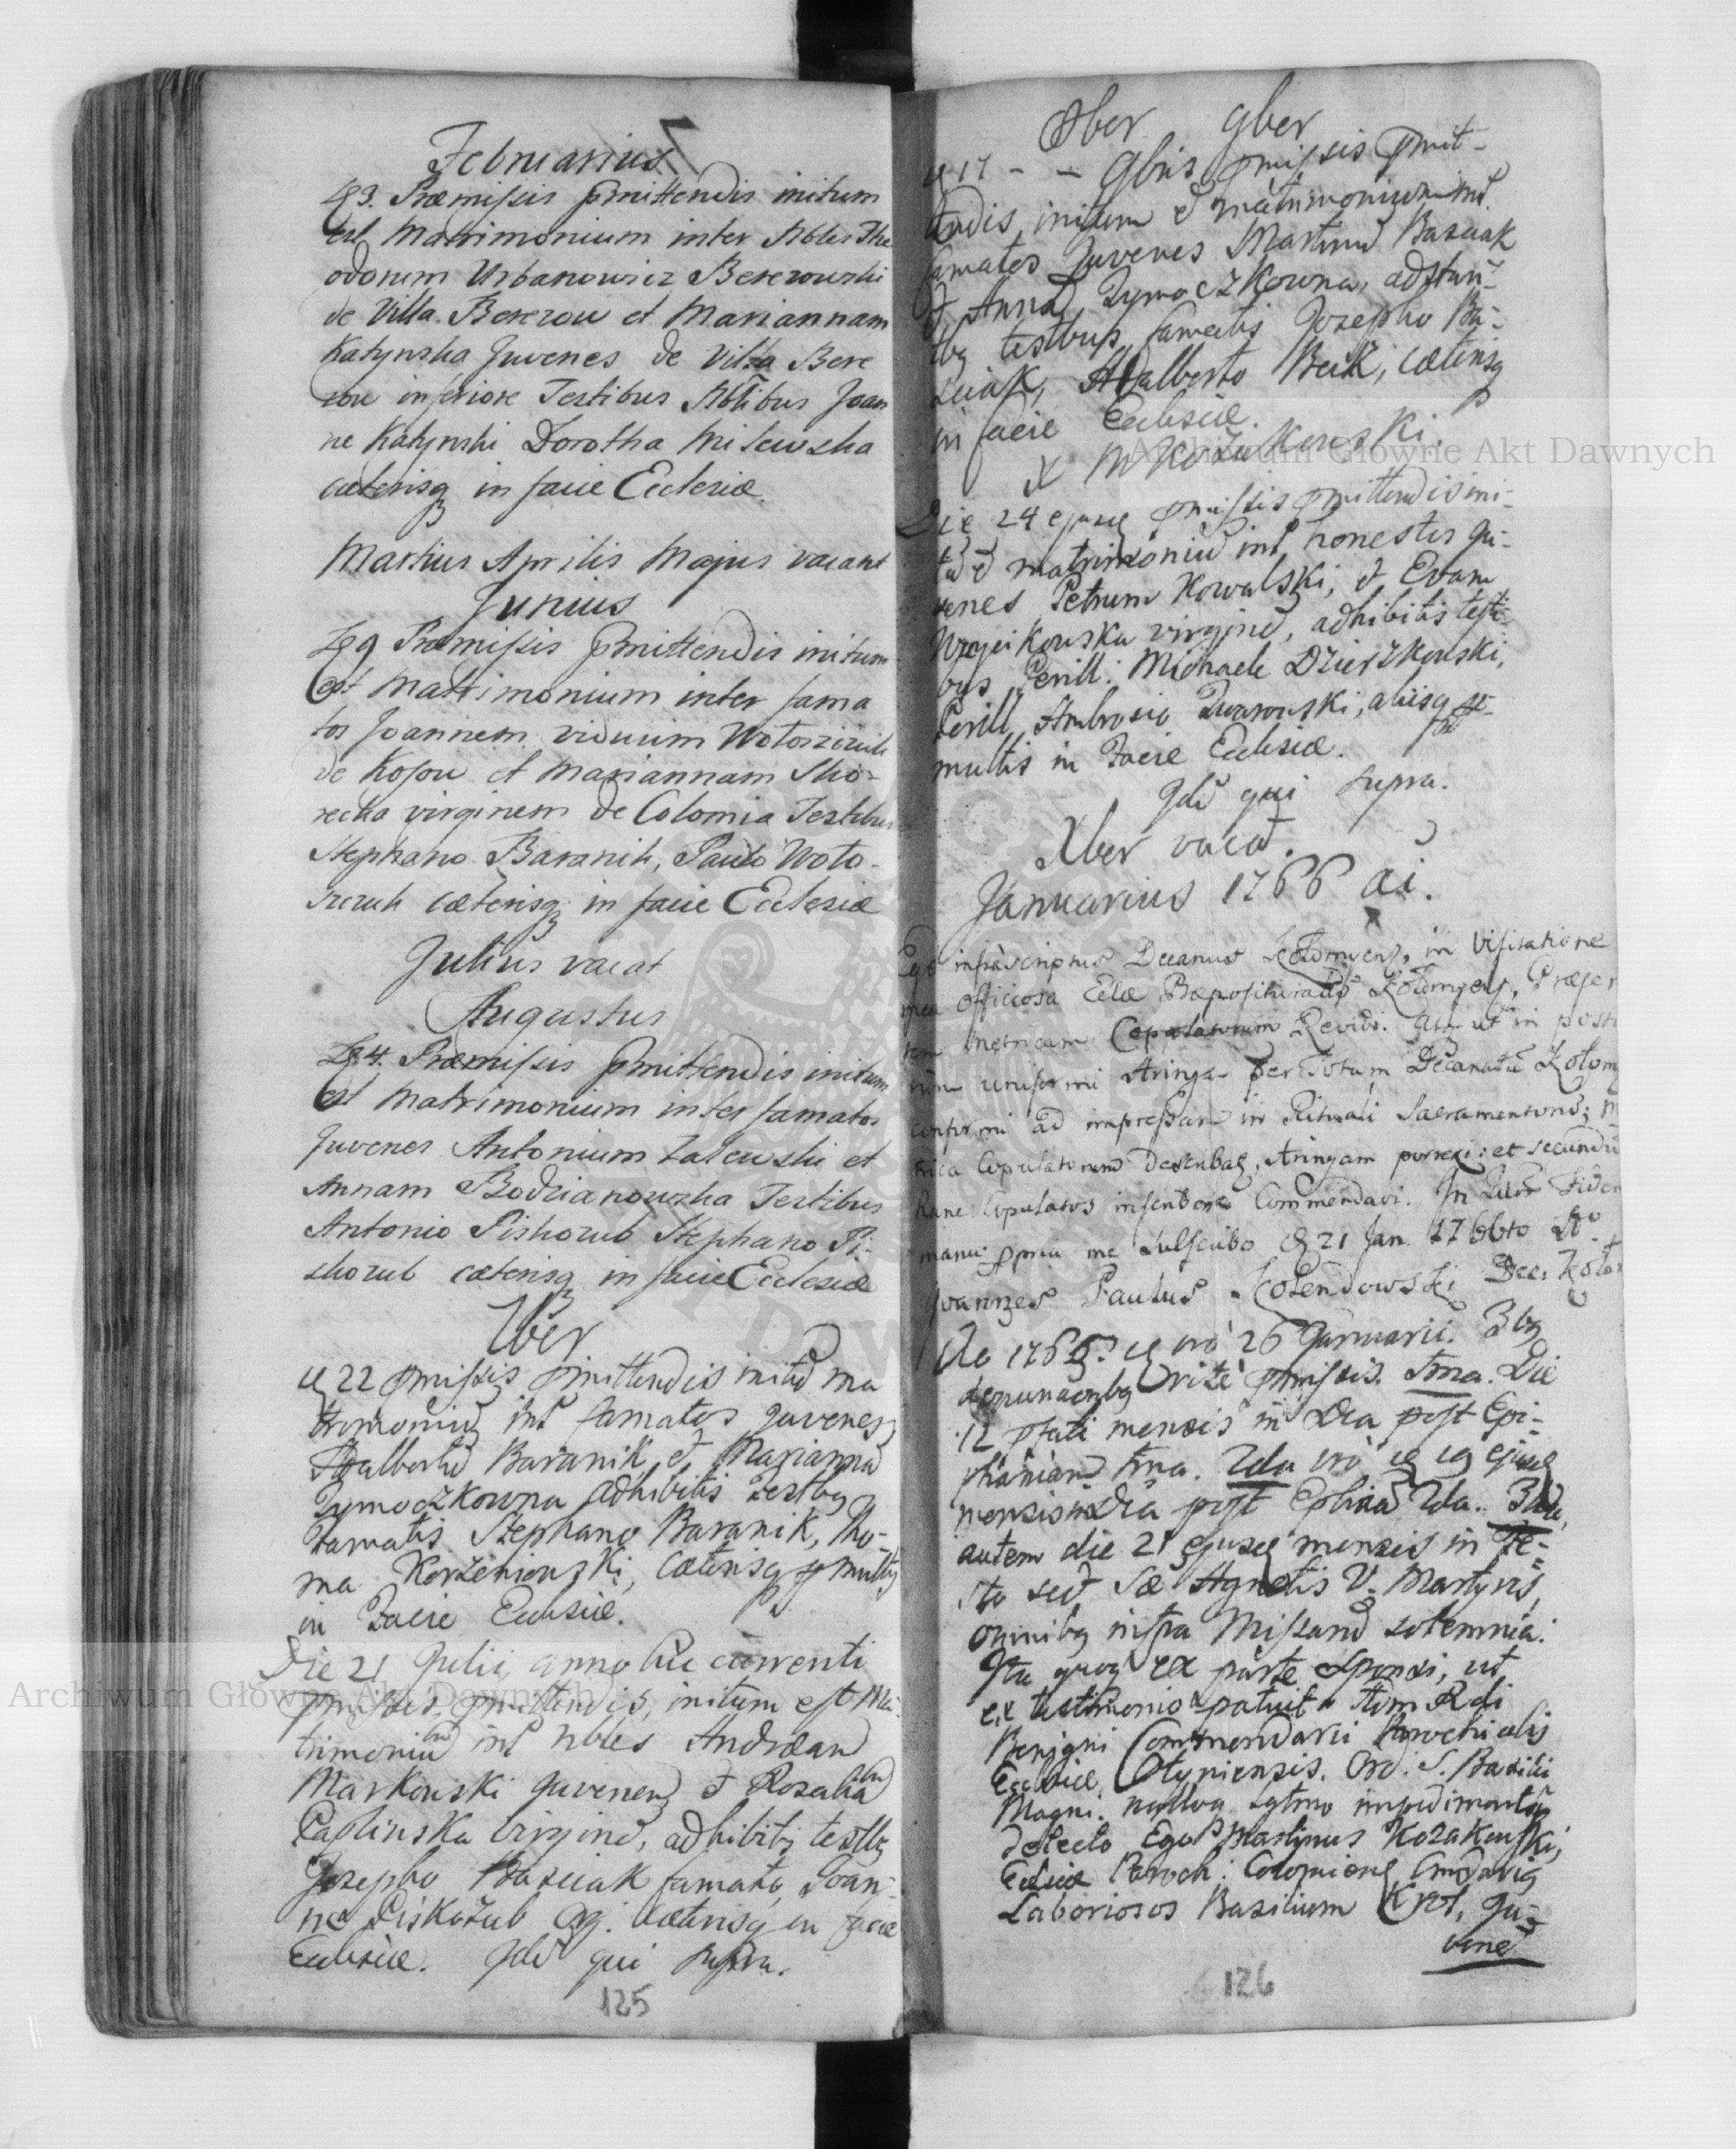 Februarius
D 3. Præmissis pmittendis initum
est Matrimonium inter Nbles The
odorum Urbanowicz Berezowski
de Villa Berezow et Mariannam
Katynska Juvenes de Villa Bere
zow inferiore Testibus Nblibus Joan
ne Katynski Dorotha Milewska
cæterisq in facie Ecclesiæ.
Martius Aprilis Majus vacant
Junius
D 9 Præmissis pmittendis initum
est Matrimonium inter fama
tos Joannem viduum Wotoszczuk
de Kosow et Mariannam Sko-
recka virginem de Colomia Testibus
Stephano Baranik, Paulo Woto-
szczuk cæterisq in facie Ecclesiæ
Julius vacat
Augustus
D 4. Præmissis pmittendis initum
est Matrimonium inter famatos
Juvenes Antonium Zalewski et
Annam Bodzianowska Testibus
Antonio Piskozub Stephano Pi-
skozub cæterisq in facie Ecclesiæ
7ber
D 22 pmissis pmittendis initu ma
trimoniu int famatos Juvenes
Adalbertu Baranik, et Marianna
Tymoczkowna adhibitis testbq
famatis Stephano Baranik, Tho-
ma Korzeniowski, cæterisq p multis
in Facie Ecclesiæ.
Die 21 Julii anno hic currenti
pmissis pmittendis, initum est Ma-
trimoniu int Nbles Andream
Markowski Juvenem et Rosalia
Caplinska virgine, adhibitis testbq
Josepho Baziak famato, Joan-
ne Piskozub Org. cæterisq in facie
Ecclesiæ. Ide qui supra.
125
8ber 9ber
D 17 - - 9bris pmissis pmit-
tendis, initum e matrimonium int
famatos Juvenes Martinu Baziak
et Anna Tymoczkowna, adstan-
tbq testbus famatis Josepho Ba-
ziak, Adalberto Beik, cæterisq
in facie Ecclesiæ.
X M Kozakowski.
Die 24 ejusd pmissis pmittendis ini-
tu e matrimoniu int honestos Ju-
venes Petrum Kowalski, et Evam
Woycikowska virgine, adhibitis testi-
bus Perill: Michaele Dzierzkowski,
Perill Ambrosio Zurowski, aliisq
multis in Facie Ecclesiæ.
Ide qui supra.
Xber vacat.
Januarius 1766 ai.
Ego infrascriptus Decanus Kolomyens, in Visitatione
mea officiosa Eclæ Præposituralis Kolomyens, Præsen
tem metricam Copulatorum Revidi. Atq ut in poste
rum uniformi Aringa per Totum Decanatu Kolomy
conformi ad impressam in Rituali Sacramentoru; Me
trica Copulatorum Describat, Aringam porrexi: et secundu
hanc Copulatos inscribere Commendavi. In quor Fidem
manu ppria me subscribo D 21 Jan 1766to
Joannes Paulus Kolendowski Dec: Kolo
Ao 1766. D vo 26 Januarii. 3bq
denunaonbq rite pmissis. 1ma. Die
12 ptati mensis in Dca post Epi-
phaniam 1ma. 2da vo D 19 ejusd
mensis in Dca post Ephia 2da. 3tia,
autem die 21 ejusd mensis in Fe-
sto sed Sæ Agnetis V. Martyris,
omnibq infra Missaru solemnia.
Ita quoq ex parte Sponsi, ut
ex testimonio patuit Adm Rdi
Benigni Commendarii Parochialis
Ecclesiæ Otyniensis. Ord: S. Basilii
Magni. nulloq Lgtmo impedimento
detecto Ego Martinus Kozakowski,
Eclæ Paroch: Colomiens Comdarius
Laboriosos Basilium Krol, Ju-
vene
126
Archiwum Główne Akt Dawnych
Archiwum Główne Akt Dawnych